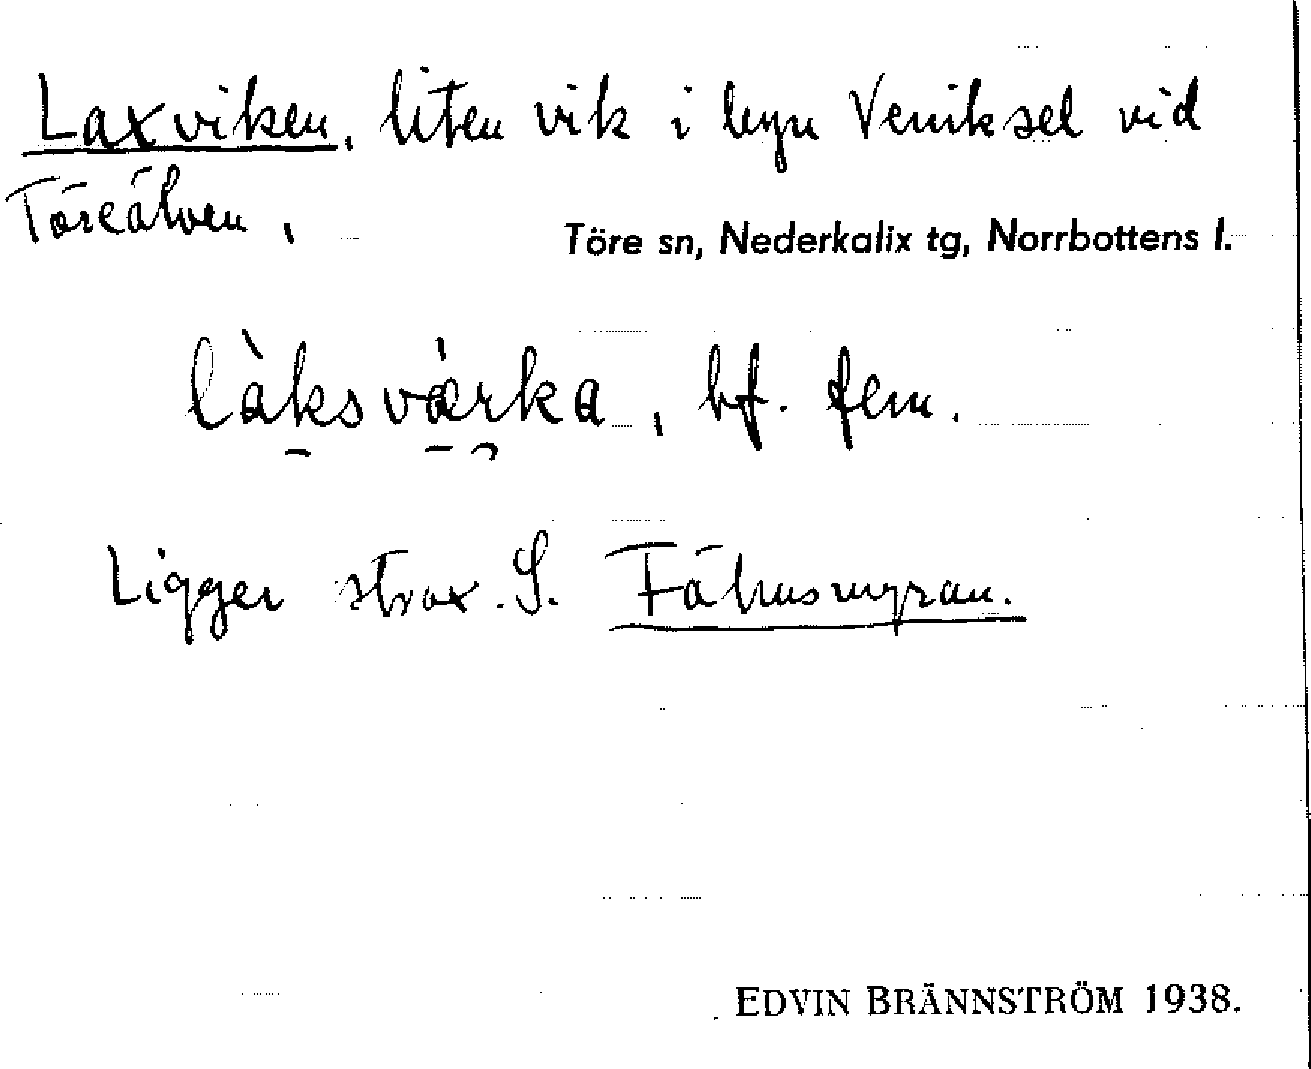 Laxviken, liten vik i lugn Veniksel vid
Töreälven,
Töre sn, Nederkalix tg, Norrbottens l.
làksværka, bf. fem.
Ligger strax S. Fähusmyran.
EDVIN BRÄNNSTRÖM 1938.